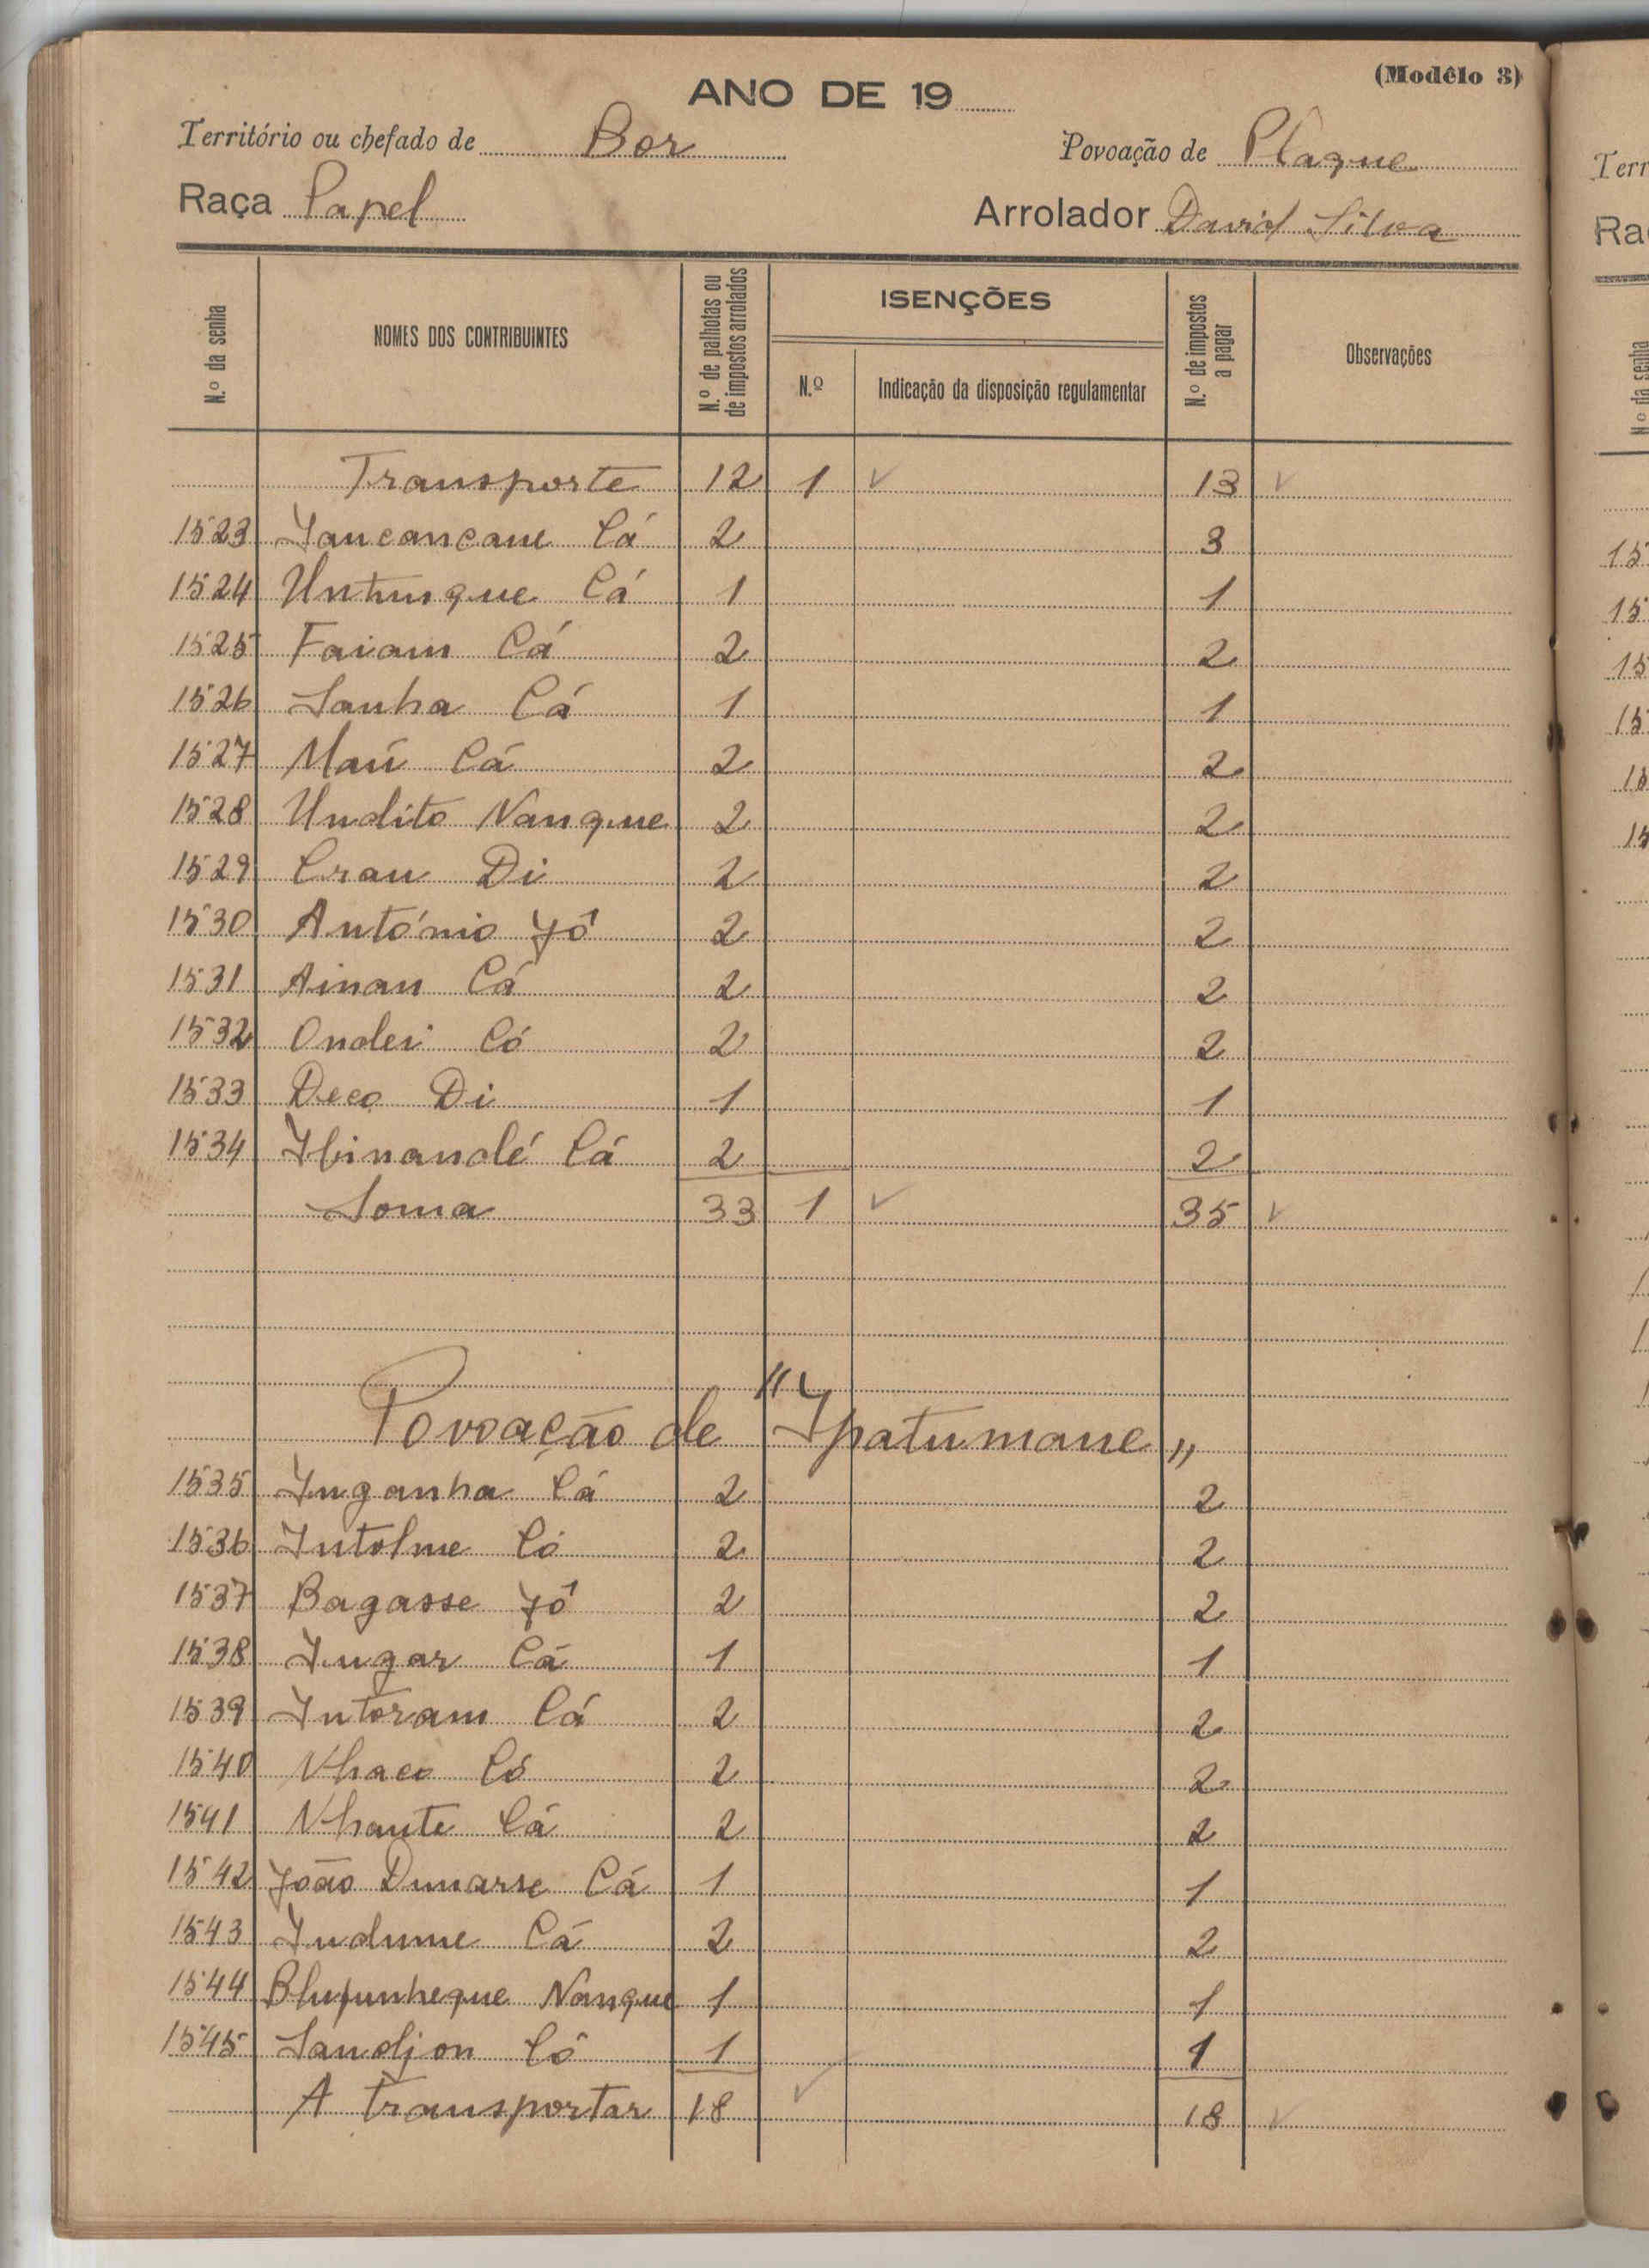 (Modêlo 3)
ANO DE 19
Território ou chefado de Bor Povoação de Plaque
Raça Papel Arrolador David Silva
N.º da senha NOMES DOS CONTRIBUINTES N.º de palhotas ou de impostos arrolados ISENÇÕES N.º Indicação da disposição regulamentar N.º de impostos a pagar Observações
Transporte 12 1 ✓ 13 ✓
1523 Yancancane Cá 2 3
1524 Untunque Cá 1 1
1525 Faiam Cá 2 2
1526 Sanha Cá 1 1
1527 Maú Cá 2 2
1528 Undito Nanque 2 2
1529 Crau Di 2 2
1530 António Jô 2 2
1531 Ainan Cá 2 2
1532 Ondei Có 2 2
1533 Deco Di 1 1
1534 Ibinandé Cá 2 2
Soma 33 1 ✓ 35 ✓
Povoação de "Ypatumane"
1535 Inganha Cá 2 2
1536 Intolme Có 2 2
1537 Bagasse Jô 2 2
1538 Ingar Cá 1 1
1539 Intoram Cá 2 2
1540 Nhaco Có 2 2
1541 Nhante Cá 2 2
1542 João Dunarse Cá 1 1
1543 Indume Cá 2 2
1544 Nanque 1 1
1545 Sandjon Có 1 1
A transportar 18 ✓ 18 ✓